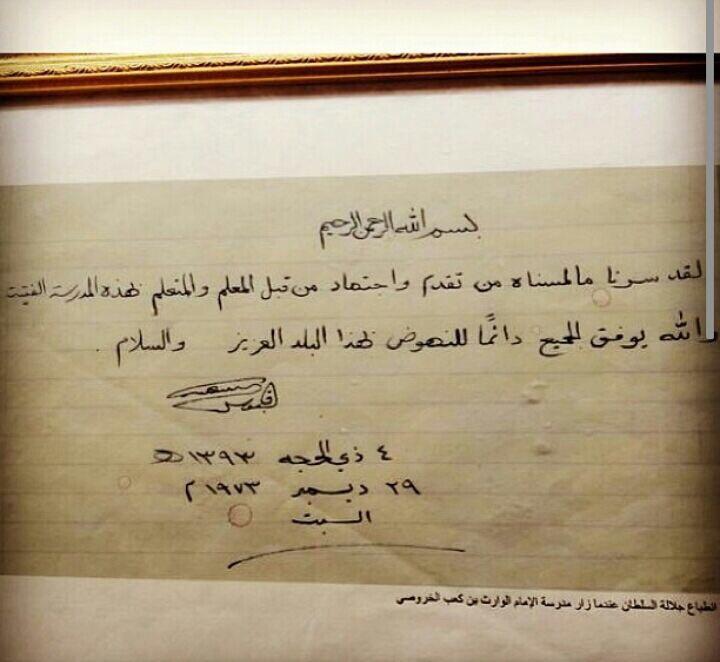 بسم الله الرحمن الرحيم
لقد سرنا مالمسناه من تقدم واجتهاد من قبل المعلم والمتعلم بهذه المدرسة الفتية
والله يوفق الجميع دائمًا للنهوض بهذا البلد العزيز والسلام .
قابوس
٤ ذي الحجه ١٣٩٣ هـ
٢٩ ديسمبر ١٩٧٣ م
السبت
انطباع جلالة السلطان عندما زار مدرسة الإمام الوارث بن كعب الخروصي